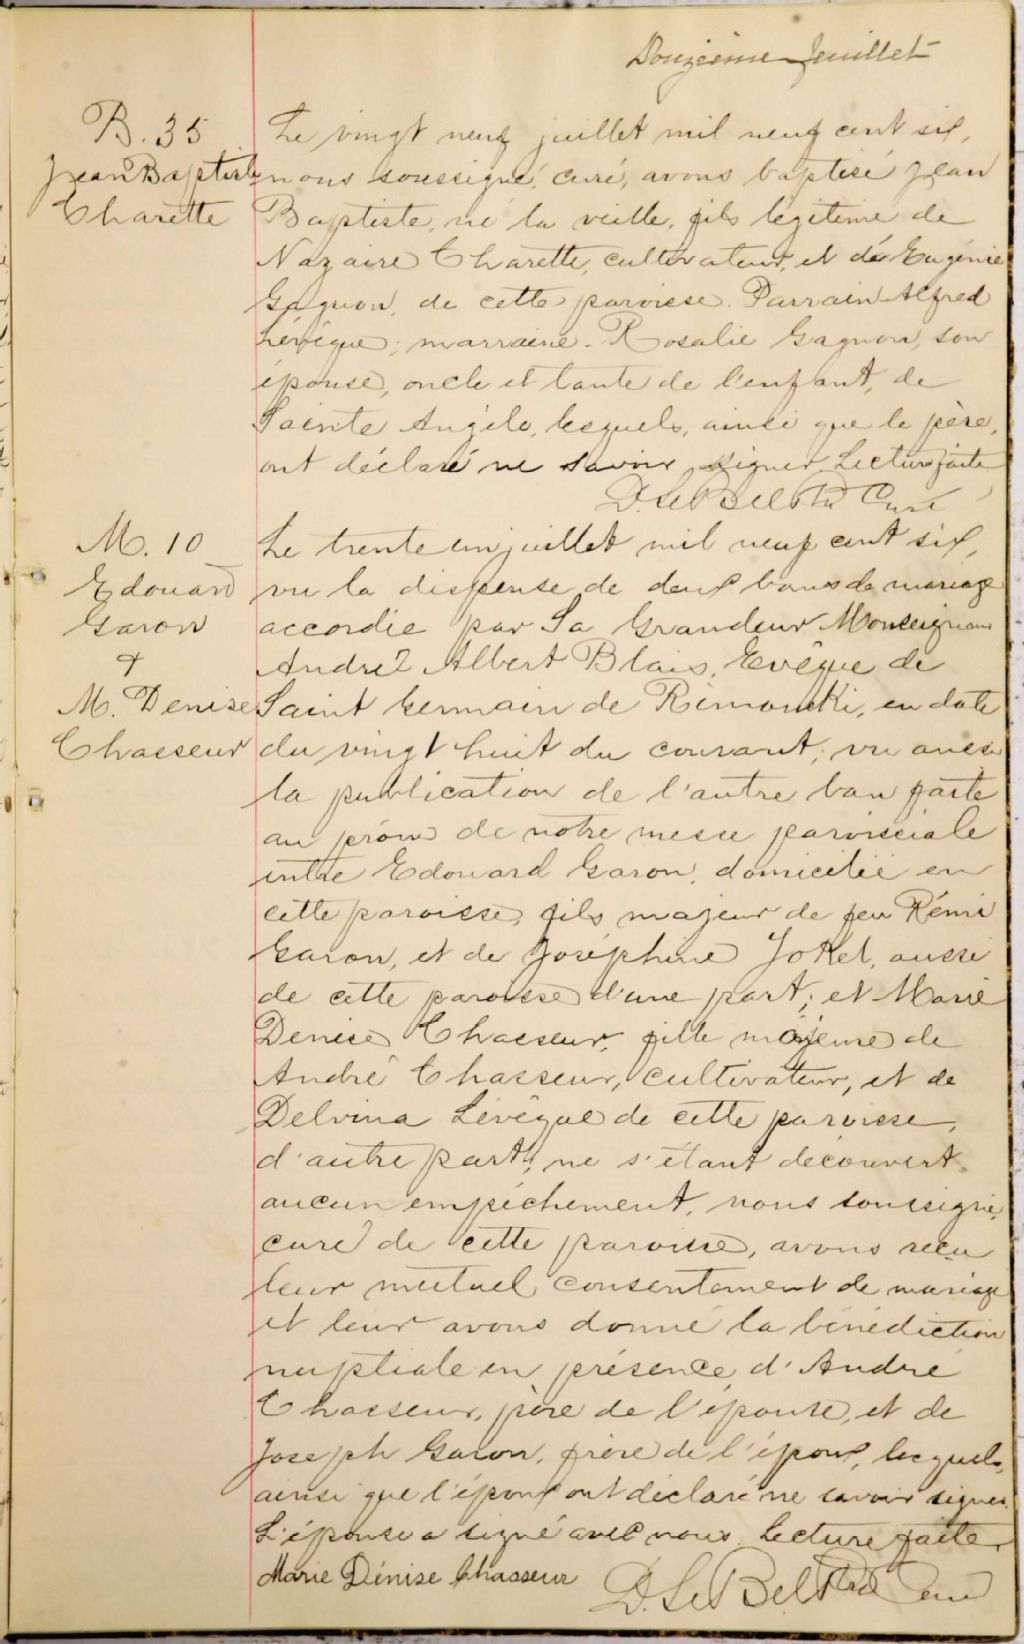 Douzième feuillet
B. 35
Jean Baptiste
Charette
Le vingt neuf juillet mil neuf cent six,
nous soussigné, curé, avons baptisé Jean
Baptiste, né la veille, fils légitime de
Nazaire Charette, cultivateur, et de Eugénie
Gagnon, de cette paroisse. Parrain Alfred
Lévêque; marraine Rosalie Gagnon, son
épouse, oncle et tante de l'enfant, de
Sainte Angèle, lesquels, ainsi que le père,
ont déclaré ne savoir signer. Lecture faite
D. LeBel Ptre Curé
M. 10
Edouard
Garon
&
M. Denise
Chasseur
Le trente un juillet mil neuf cent six,
vu la dispense de deux bans de mariage
accordée par Sa Grandeur Monseigneur
André Albert Blais, Evêque de
Saint Germain de Rimouski, en date
du vingt huit du courant; vu aussi
la publication de l'autre ban faite
au prône de notre messe paroissiale
entre Edouard Garon, domicilié en
cette paroisse, fils majeur de feu Rémi
Garon, et de Joséphine, aussi
de cette paroisse d'une part; et Marie
Denise Chasseur, fille majeure de
André Chasseur, cultivateur, et de
Delvina Lévêque de cette paroisse,
d'autre part; ne s'étant découvert
aucun empêchement, nous soussigné,
curé de cette paroisse, avons reçu
leur mutuel consentement de mariage
et leur avons donné la bénédiction
nuptiale en présence d'André
Chasseur, père de l'épouse, et de
Joseph Garon, frère de l'époux, lesquels,
ainsi que l'époux ont déclaré ne savoir signer.
L'épouse a signé avec nous. Lecture faite.
Marie Dénise Chasseur
D. LeBel Ptre Curé